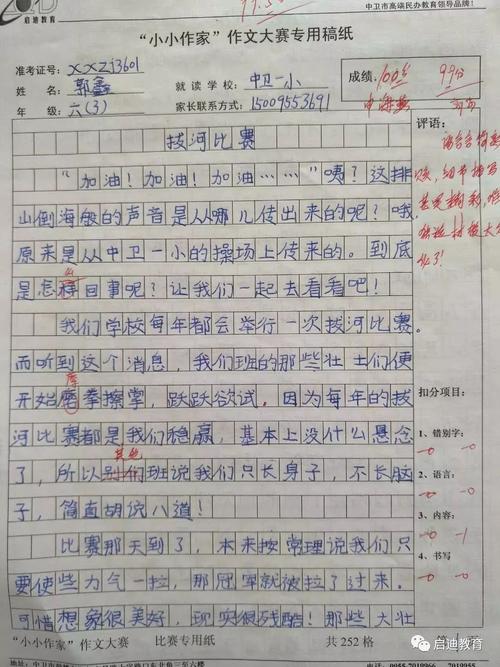 启迪教育
中卫市高端民办教育领导品牌！
99.50
“小小作家”作文大赛专用稿纸
准考证号：XXZJ3601
姓名 郭鑫
就读学校：中卫一小
年级：六(3)
家长联系方式：15009553691
成绩：100分 99分
评语：
拔河比赛
“加油！加油！加油……”咦？这排
山倒海般的声音是从哪儿传出来的呢？哦，
原来是从中卫一小的操场上传来的。到底
是怎么回事呢？让我们一起去看看吧！
我们学校每年都会举行一次拔河比赛。
而听到这个消息，我们班的那些壮士们便
开始摩拳擦掌，跃跃欲试。因为每年的拔
河比赛都是我们稳赢，基本上没什么悬念
了，所以别们班说我们只长身子，不长脑
其他
子，简直胡说八道！
比赛那天到了，本来按常理说我们只
要使些力气一拉，那冠军就被拉了过来。
可惜想象很美好，现实很残酷！那些大壮
扣分项目：
1、错别字：
-0 -0
2、语言：
-0 -0
3、内容：
-0 -1
4、书写
-0 -0
“小小作家”作文大赛 比赛专用纸 共252格 第1页
启迪教育